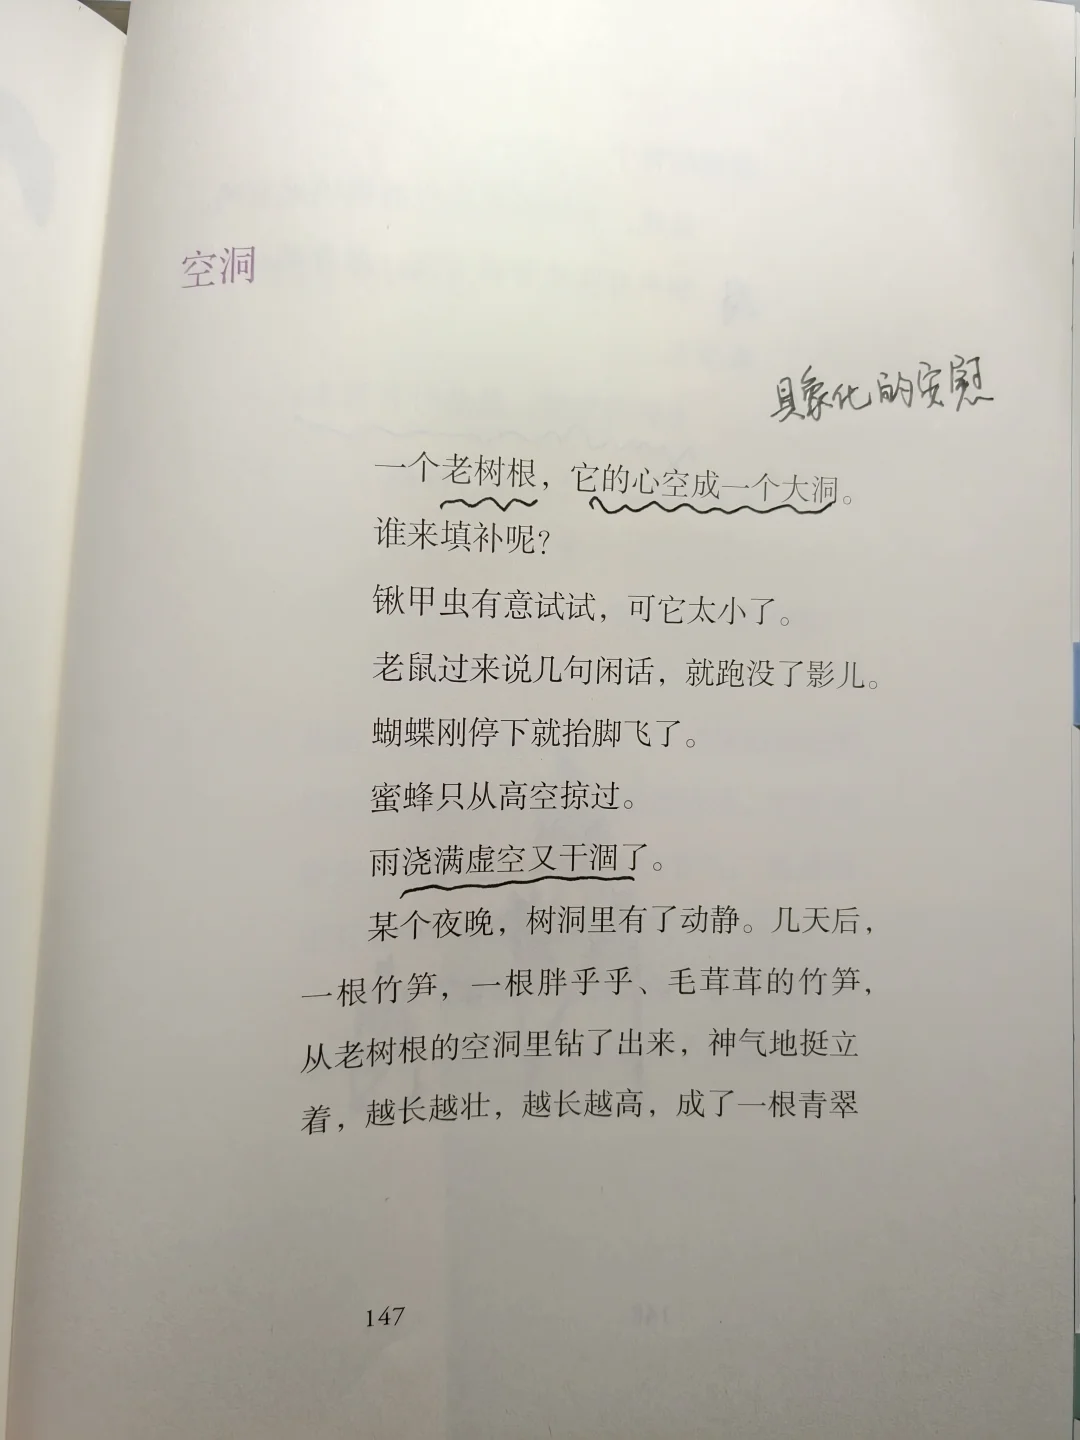 空洞
具象化的安慰
一个老树根，它的心空成一个大洞。
谁来填补呢？
锹甲虫有意试试，可它太小了。
老鼠过来说几句闲话，就跑没了影儿。
蝴蝶刚停下就抬脚飞了。
蜜蜂只从高空掠过。
雨浇满虚空又干涸了。
某个夜晚，树洞里有了动静。几天后，
一根竹笋，一根胖乎乎、毛茸茸的竹笋，
从老树根的空洞里钻了出来，神气地挺立
着，越长越壮，越长越高，成了一根青翠
147